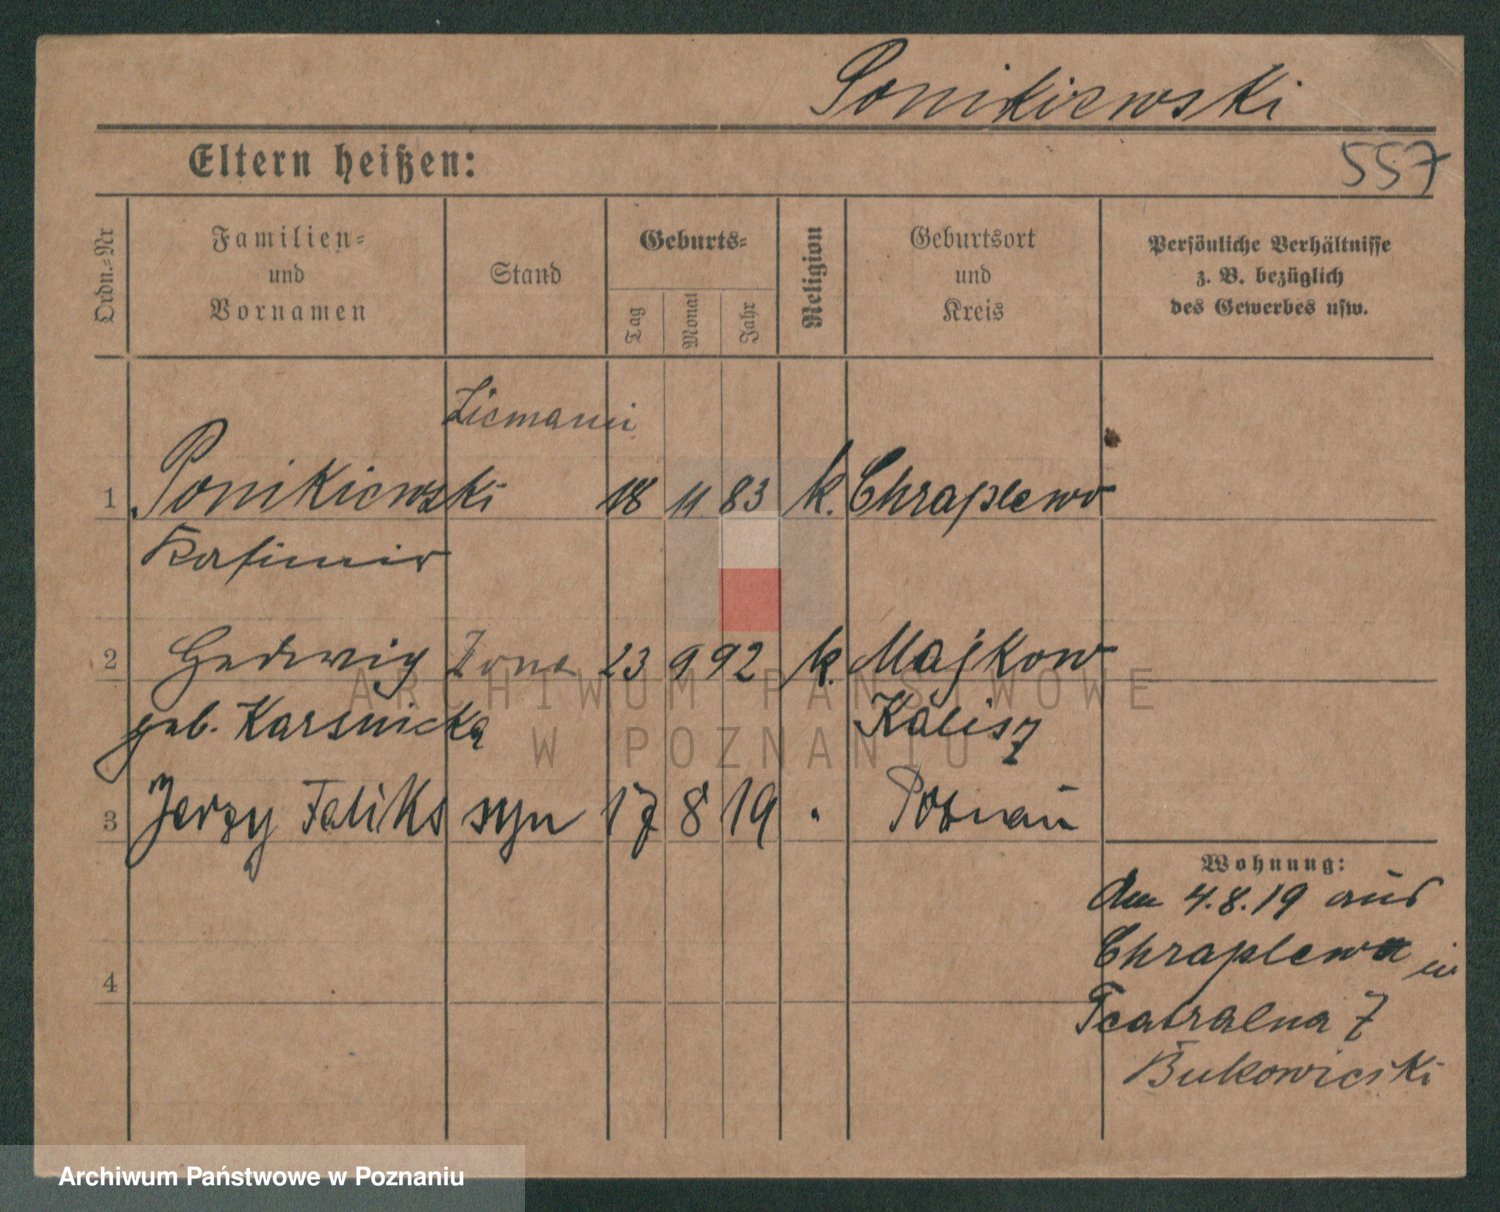 Ponikiewski
Eltern heißen:
557
Ordn.-Nr
Familien-
und
Vornamen
Stand
Geburts-
Tag
Monat
Jahr
Religion
Geburtsort
und
Kreis
Persönliche Verhältnisse
z. B. bezüglich
des Gewerbes usw.
Ziemanin
1 Ponikiewski 18 11 83 k. Chraplewo
Kasimir
2 Hedwig żona 23 9 92 k. Majkow
geb. Karsnicka Kalisz
3 Jerzy Feliks syn 17 8 19 " Poznań
Wohnung:
den 4.8.19 aus
Chraplewo in
4
Teatralna 7
Bukowiecki
ARCHIWUM PAŃSTWOWE
W POZNANIU
Archiwum Państwowe w Poznaniu